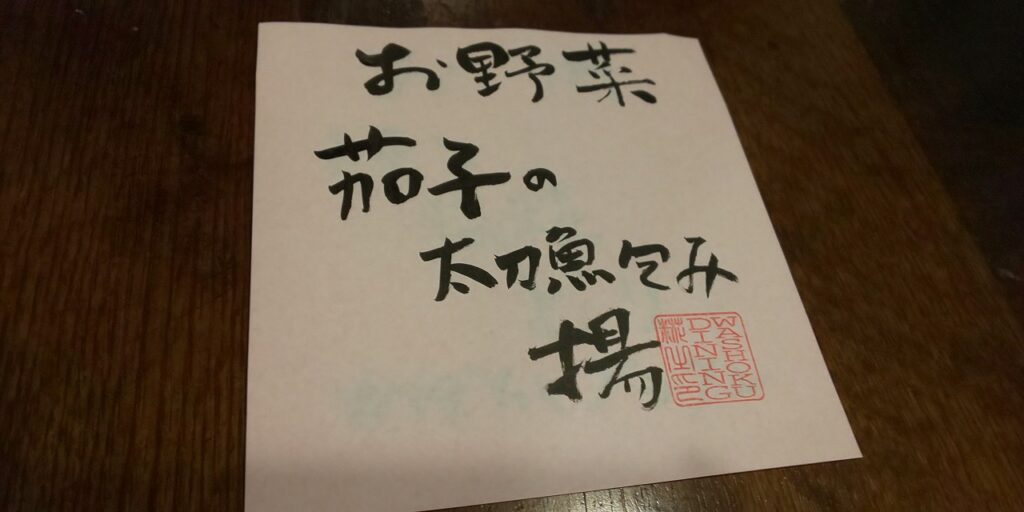 お野菜
茄子の
太刀魚包み
揚
WASHOKU
DINING